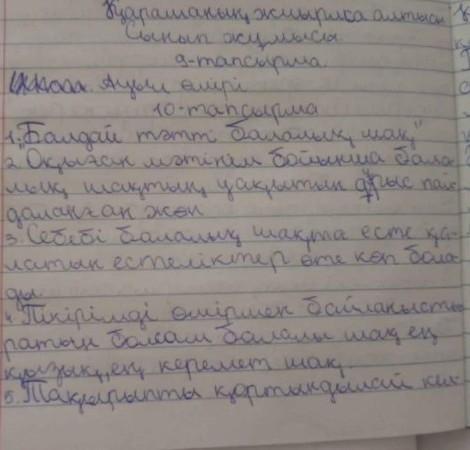 Қарашаның жиырмса алтысы
Сынып жұмысы
9-тапсырма
Ауыл өмірі
10-тапсырма
1. "Балдай тәтті балалық шақ"
2. Оқыған мәтінім бойынша бала-
лық шақтың уақытын дұрыс пай-
даланған жөн
3. Себебі балалық шақта есте қа-
латын естеліктер өте көп бола-
ды
4. Пікірімді өмірмен байланысты-
ратын болсам балалы шақ ең
қызық, ең керемет шақ.
5. Тақырыпты қортындылай кел-